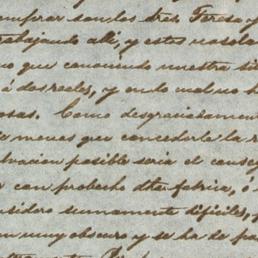 comprar son los tres Tereso y
trabajando alli, y estos nosola
no que conociendo nuestra sit
á dos reeles, y en lo mal no h
osas. Como desgraciadament
a menos que concederle la r
lvacion posible seria el conseg
r con probecho dha fabrica, ó
sidero sumamente dificiles, y
en muy obscuro y se ha de pa